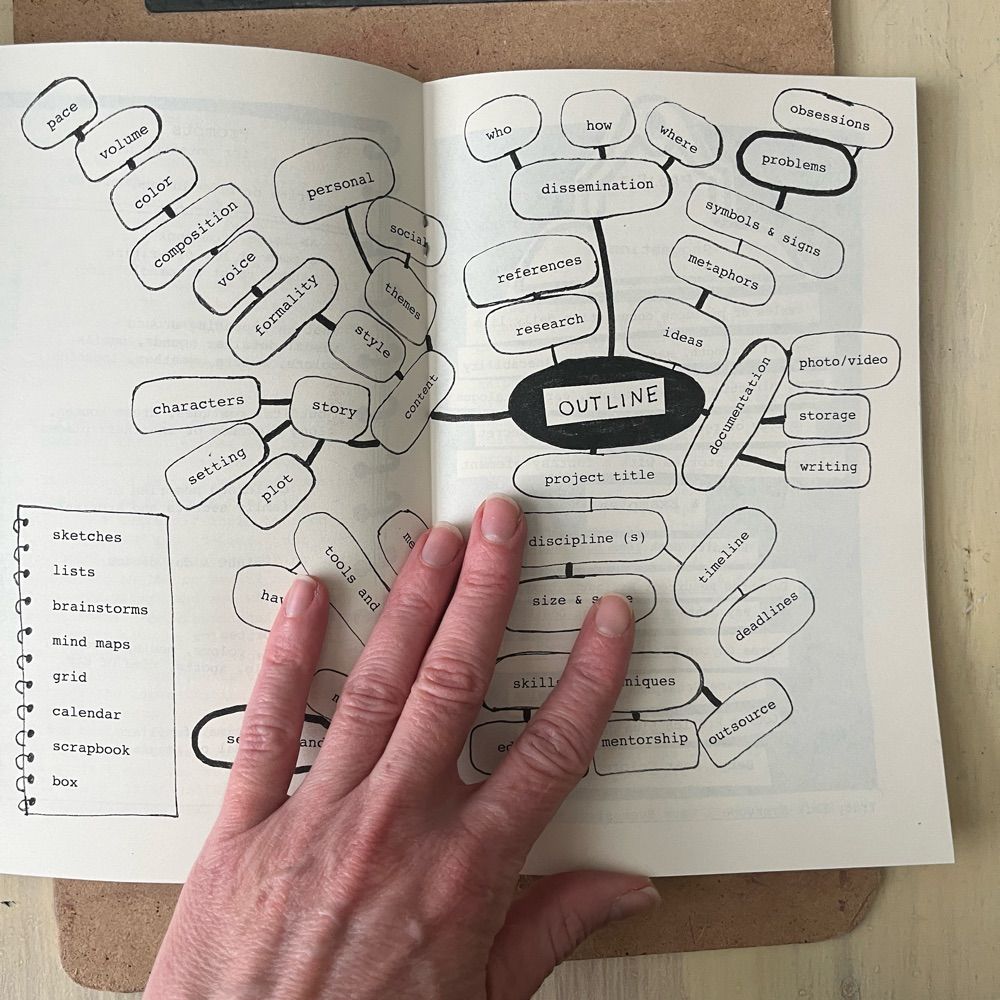 pace
volume
color
composition
voice
formality
style
personal
social
themes
content
characters
story
setting
plot
sketches
lists
brainstorms
mind maps
grid
calendar
scrapbook
box
tools and
who
how
where
dissemination
obsessions
problems
symbols & signs
metaphors
ideas
references
research
OUTLINE
documentation
photo/video
storage
writing
project title
discipline (s)
size &
timeline
deadlines
mentorship
outsource